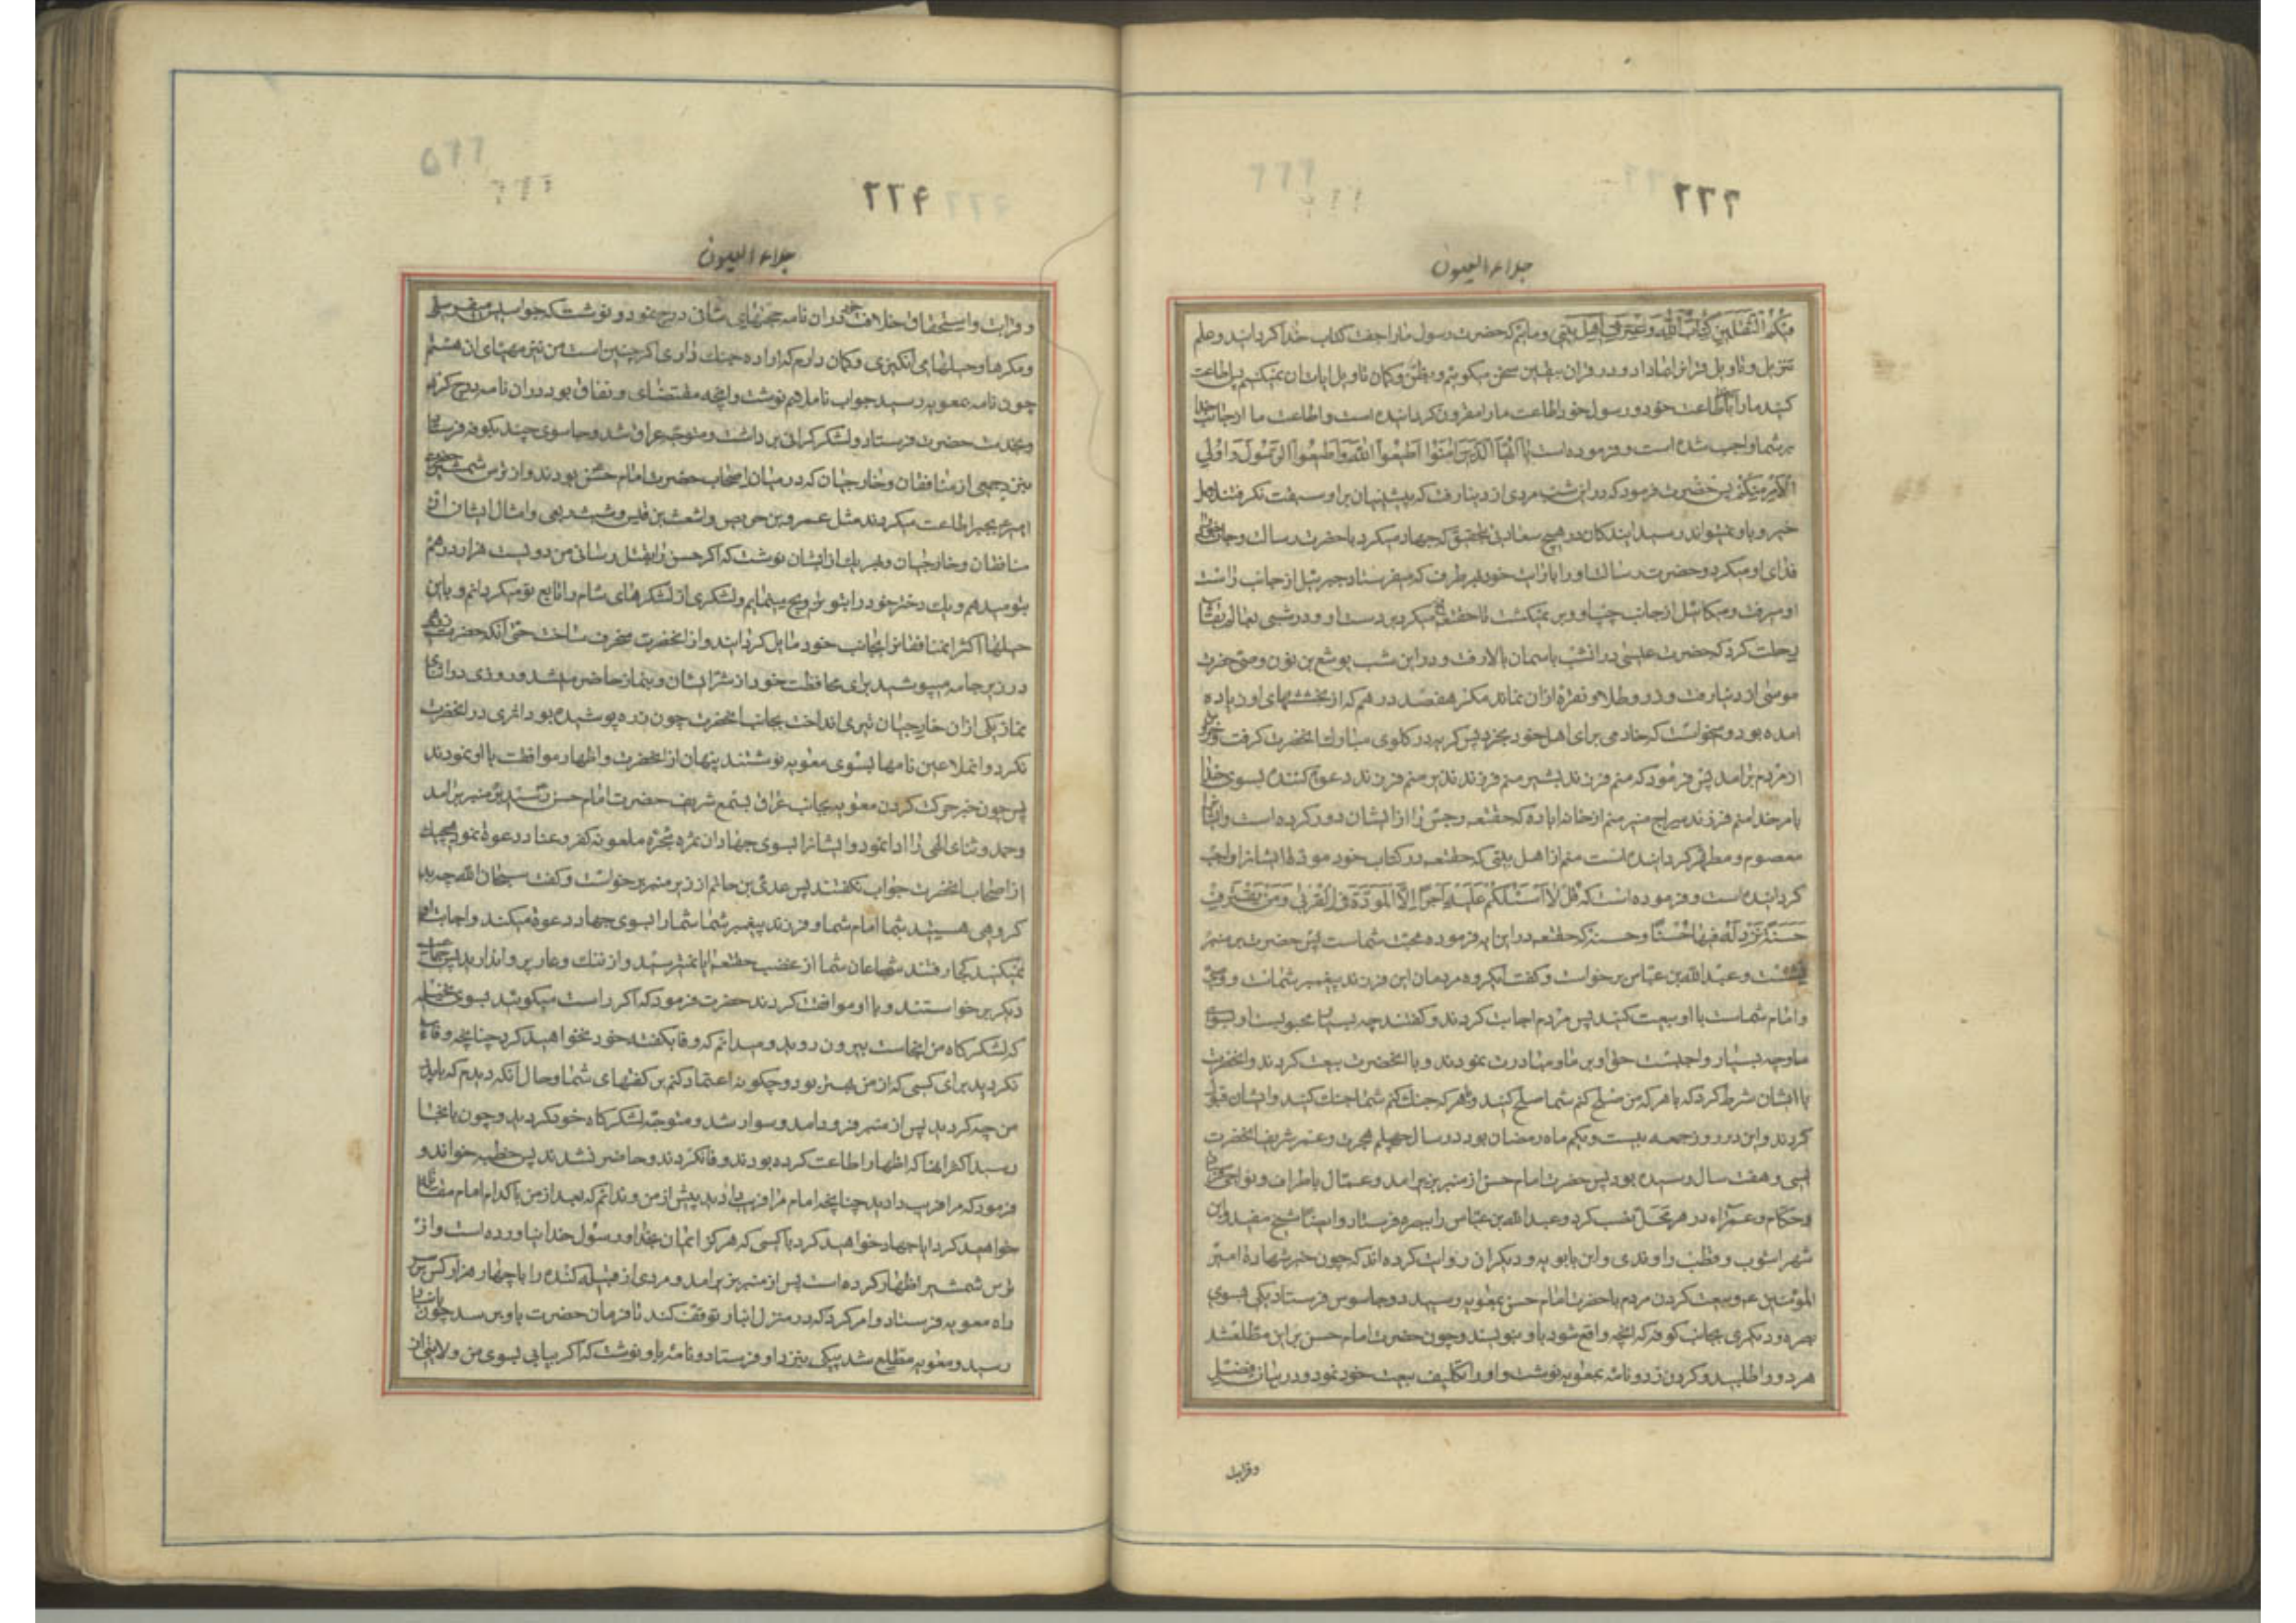 ٢٢٢
جلاء العیون
فیکم الثقلین کتاب الله و عترتی اهل بیتی و مائیم که حضرت رسول ما را جفت کتاب خدا کردانید و علم
تنزیل و تاویل قرانرا بما داد و در قران بیقین سخن میکوئیم و بظن و کمان تاویل ایات ان نمیکنیم پس اطاعت
کنید ما را اطاعت خود و رسول خود اطاعت ما را مقرون کردانیده است و اطاعت ما از جانب خدا
بر شما واجب شده است و فرموده است یا ایها الذین امنوا اطیعوا الله و اطیعوا الرسول و اولی
الامر منکم پس حضرت فرمود که در این شب مردی از دنیا رفت که پیشینیان بر او سبقت نکرفتند بعمل
خیر و باو نمیتواند رسید ایندکان در هیچ سعادتی بتحقیق که جهاد میکرد با حضرت رسالت و جان خود
فدای او میکرد و حضرت رسالت او را با رایت خود بهر طرف که میفرستاد جبرئیل از جانب راست
او میرفت و میکائیل از جانب چپ او و بر نمیکشت تا حقتعالی فتح میکرد بر دست او و در شبی بعالم بقا
رحلت کرد که حضرت عیسی در انشب باسمان بالا رفت و در این شب یوشع بن نون وصی حضرت
موسی از دنیا رفت و از طلا و نقره ازان نماند مکر هفصد درهم که از بخششهای او زیاده
امده بود و میخواست که خادمی برای اهل خود بخرد پس کریه در کلوی مبارک انحضرت کرفت و خروش
از مردم برامد پس فرمود که منم فرزند بشیر منم فرزند نذیر منم فرزند دعوت کننده بسوی خدا
بامر خدا منم فرزند سراج منیر منم از خانه اباده که حقتعالی رجس را از ایشان دور کرده است و ایشانرا
معصوم و مطهر کردانیده است منم از اهل بیتی که حقتعالی در کتاب خود مودة ایشانرا واجب
کردانیده است و فرموده است که قل لا اسئلکم علیه اجرا الا المودة فی القربی و من یقترف
حسنة نزد له فیها حسنا و حسنه که حقتعالی در این ایه فرموده محبت ماست پس حضرت بر منبر
نشست و عبد الله بن عباس برخواست و کفت ایکروه مردمان این فرزند پیغمبر شماست و وصی
و امام شماست با او بیعت کنید پس مردم اجابت کردند و کفتند چه بسیار محبوبست او بسوی
ما و چه بسیار واجبست حق او بر ما و مبادرت نمودند و با انحضرت بیعت کردند و انحضرت
با ایشان شرط کرد که با هر که من صلح کنم شما صلح کنید و با هر که جنک کنم شما جنک کنید و ایشان قبول
کردند و این در روز جمعه بیست و یکم ماه رمضان بود در سال چهلم هجرت و عمر شریف انحضرت
بسی و هفت سال رسیده بود پس حضرت امام حسن از منبر بزیر امد و عمال باطراف و نواحی فرستاد
و حکام و امراء در هر محل نصب کرد و عبد الله بن عباس را ببصره فرستاد و ایضا شیخ مفید و ابن
شهراشوب و قطب راوندی و ابن بابویه و دیکران روایت کرده اند که چون خبر شهادة امیر
المؤمنین ع و بیعت کردن مردم با حضرت امام حسن بمعویه رسید دو جاسوس فرستاد یکی بسوی
بصره و دیکری بجانب کوفه که انچه واقع شود باو بنویسند و چون حضرت امام حسن بر این مطلع شد
هر دو را طلبید و کردن زد و نامه بمعویه نوشت و او را تکلیف بیعت خود نمود و در بیان فضل
و قرابت
٢٢۴
جلاء العیون
و قرابت و استحقاق خلافت خود دران نامه حجتهای شافی درج نمود و نوشت که جواسیس میفرستی
و مکرها و حیلها می انکیزی و کمان دارم که اراده جنک داری اکر چنین است من نیز مهیای ان هستم
چون نامه بمعویه رسید جواب ناملایم نوشت و انچه مقتضای و نفاق بود دران نامه درج کرده
و بخدمت حضرت فرستاد و لشکر کرانی برداشت و متوجه عراق شد و جاسوسی چند بکوفه فرستاد
بنزد جمعی از منافقان و خارجیان که در میان اصحاب حضرت امام حسن بودند و از ترس شمشیر حضرت
امیر بجبر اطاعت میکردند مثل عمرو بن حریص و اشعث بن قیس و شبث ربعی و امثال ایشان از
منافقان و خارجیان و بهر یک از ایشان نوشت که اکر حسن را بقتل رسانی من دویست هزار درهم
بتو میدهم و یک دختر خود را بتو تزویج مینمایم و لشکری از لشکرهای شام را تابع تو میکردانم و باین
حیلها اکثر انمنافقانرا بجانب خود مایل کردانید و از انحضرت منحرف ساخت حتی انکه حضرت زرهی
در زیر جامه میپوشید برای محافظت خود از شر ایشان و بنماز حاضر میشد و روزی در اثنای
نماز یکی از ان خارجیان تیری انداخت بجانب انحضرت چون زره پوشیده بود اثری در انحضرت
نکرد و انملاعین نامها بسوی معویه نوشتند پنهان از انحضرت و اظهار موافقت با او نمودند
پس چون خبر حرکت کردن معویه بجانب عراق بسمع شریف حضرت امام حسن رسید بر منبر برامد
و حمد و ثنای الهی را ادا نمود و ایشانرا بسوی جهاد ان شجره ملعونه کفر و عناد دعوة نمود هیچیک
از اصحاب انحضرت جواب نکفتند پس عدی بن حاتم از زیر منبر برخواست و کفت سبحان الله چه بد
کروهی هستید شما امام شما و فرزند پیغمبر شما شما را بسوی جهاد دعوة میکند و اجابت او
نمیکنید کجا رفتند شجاعان شما از غضب حقتعالی نمیترسید و از ننک و عار پروا ندارید پس جماعت
دیکر برخواستند و با او موافقت کردند حضرت فرمود که اکر راست میکوئید بسوی نخیله
که لشکرکاه من انجاست بیرون روید و میدانم که وفا بکفته خود نخواهید کرد چنانچه وفا
نکردید برای کسی که از من بهتر بود و چکونه اعتماد کنم بر کفتهای شما و حال انکه دیدم که با پدر
من چه کردید پس از منبر فرود امد و سوار شد و متوجه لشکرکاه خود کردید و چون بانجا
رسید اکثر انها که اظهار اطاعت کرده بودند وفا نکردند و حاضر نشدند پس خطبه خواند و
فرمود که مرا فریب دادید چنانچه امام مرا فریب دادید پیش از من و ندانم که بعد از من با کدام امام مقاتله
خواهید کرد ایا جهاد خواهید کرد با کسی که هرکز ایمان بخدا و رسول خدا نیاورده است و از
ترس شمشیر اظهار کرده است پس از منبر بزیر امد و مردی از قبیله کنده را با چهار هزار کس بر سر
راه معویه فرستاد و امر کرد که در منزل انبار توقف کند تا فرمان حضرت باو برسد چون بانبار
رسید و معویه مطلع شد پیکی بنزد او فرستاد و نامه باو نوشت که اکر بیایی بسوی من ولایتی از